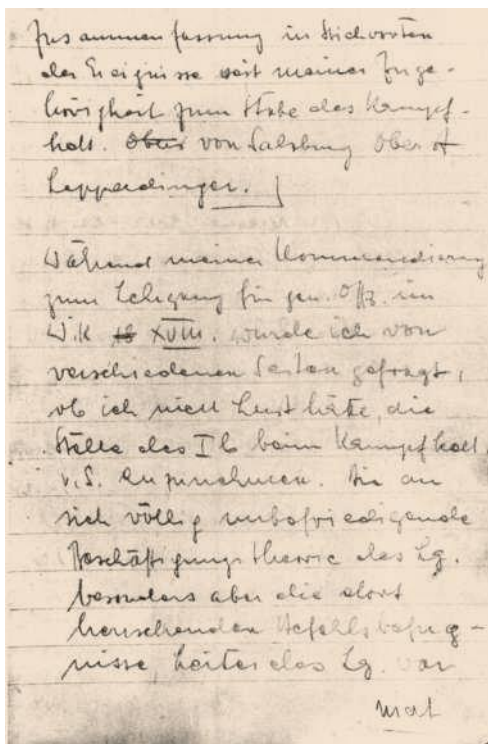 Zusammenfassung in Stichworten
der Ereignisse seit meiner Zuge-
hörigkeit zum Stabe des Kampf-
kdt. Ober von Salzburg Oberst
Lepperdinger.
Während meiner Kommandierung
zum Lehrgang für gen. Offz. im
W.K. 18 XVIII. wurde ich von
verschiedenen Seiten gefragt,
ob ich nicht Lust hätte, die
Stelle des Ib beim Kampfkdt.
v.S. anzunehmen. Die an
sich völlig unbefriedigende
Beschäftigungstheorie des Lg.
besonders aber die dort
herrschenden Befehlsbefug-
nisse, Leiter des Lg. war